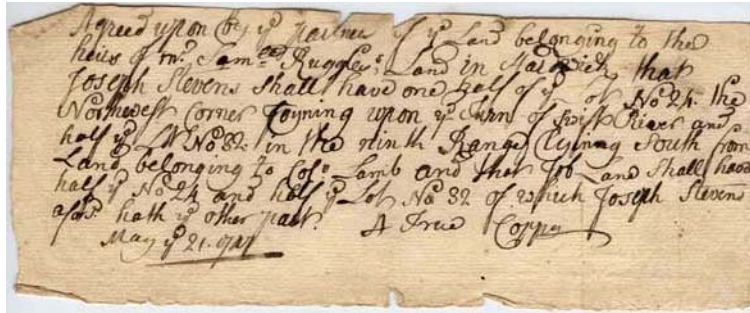 Agreed upon by ye partners of ye Land belonging to the
heirs of mr. Samll Ruggles: Land in Hardwick that
Joseph Stevens shall have one half of ye ot No 24. the
Northwest Corner Joyning upon ye Turn of swift River and
half ye Lot No 32. in the ninth Range Lying South from
Land belonging to Coll Lamb and that Job Land shall have
half ye No 24 and half ye Lot No 32 of which Joseph Stevens
aforsd. hath ye other part. A True Coppy
May ye 21.